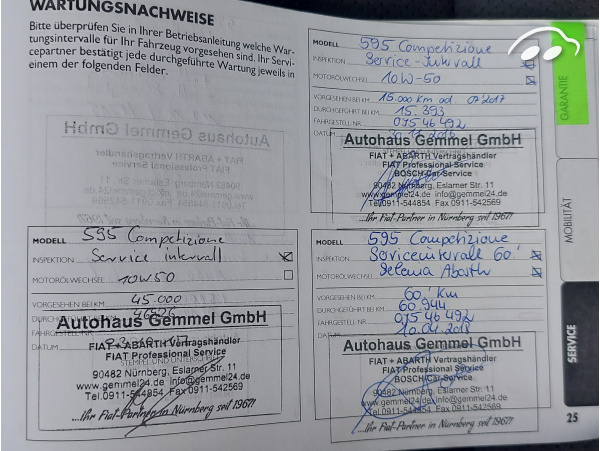 WARTUNGSNACHWEISE
Bitte überprüfen Sie in Ihrer Betriebsanleitung welche War-
tungsintervalle für Ihr Fahrzeug vorgesehen sind. Ihr Servi-
cepartner bestätigt jede durchgeführte Wartung jeweils in
einem der folgenden Felder.
MODELL 595 Competizione
INSPEKTION Service-Intervall
MOTORÖLWECHSEL 10W-50
VORGESEHEN BEI KM 15.000 km od
DURCHGEFÜHRT BEI KM 15.393
FAHRGESTELL NR. 075 46 492
DATUM
Autohaus Gemmel GmbH
FIAT + ABARTH Vertragshändler
FIAT Professional Service
BOSCH Car Service
90482 Nürnberg, Eslarner Str. 11
www.gemmel24.de info@gemmel24.de
Tel.0911-544854 Fax 0911-542569
...Ihr Fiat-Partner in Nürnberg seit 1967!
MODELL 595 Competizione
INSPEKTION Service intervall
MOTORÖLWECHSEL 10W50
VORGESEHEN BEI KM 45.000
DURCHGEFÜHRT BEI KM
FAHRGESTELL NR.
DATUM
Autohaus Gemmel GmbH
FIAT + ABARTH Vertragshändler
FIAT Professional Service
STEMPEL UND UNTERSCHRIFT
90482 Nürnberg, Eslarner Str. 11
www.gemmel24.de info@gemmel24.de
Tel.0911-544854 Fax 0911-542569
...Ihr Fiat-Partner in Nürnberg seit 1967!
MODELL 595 Competizione
INSPEKTION Serviceintervall 60'
MOTORÖLWECHSEL Selenia Abarth
VORGESEHEN BEI KM 60' km
DURCHGEFÜHRT BEI KM 60.944
FAHRGESTELL NR. 075 46 492
DATUM 10.04.2018
Autohaus Gemmel GmbH
FIAT + ABARTH Vertragshändler
FIAT Professional Service
BOSCH Car Service
90482 Nürnberg, Eslarner Str. 11
www.gemmel24.de info@gemmel24.de
Tel.0911-544854 Fax 0911-542569
...Ihr Fiat-Partner in Nürnberg seit 1967!
GARANTIE
MOBILITÄT
SERVICE
25